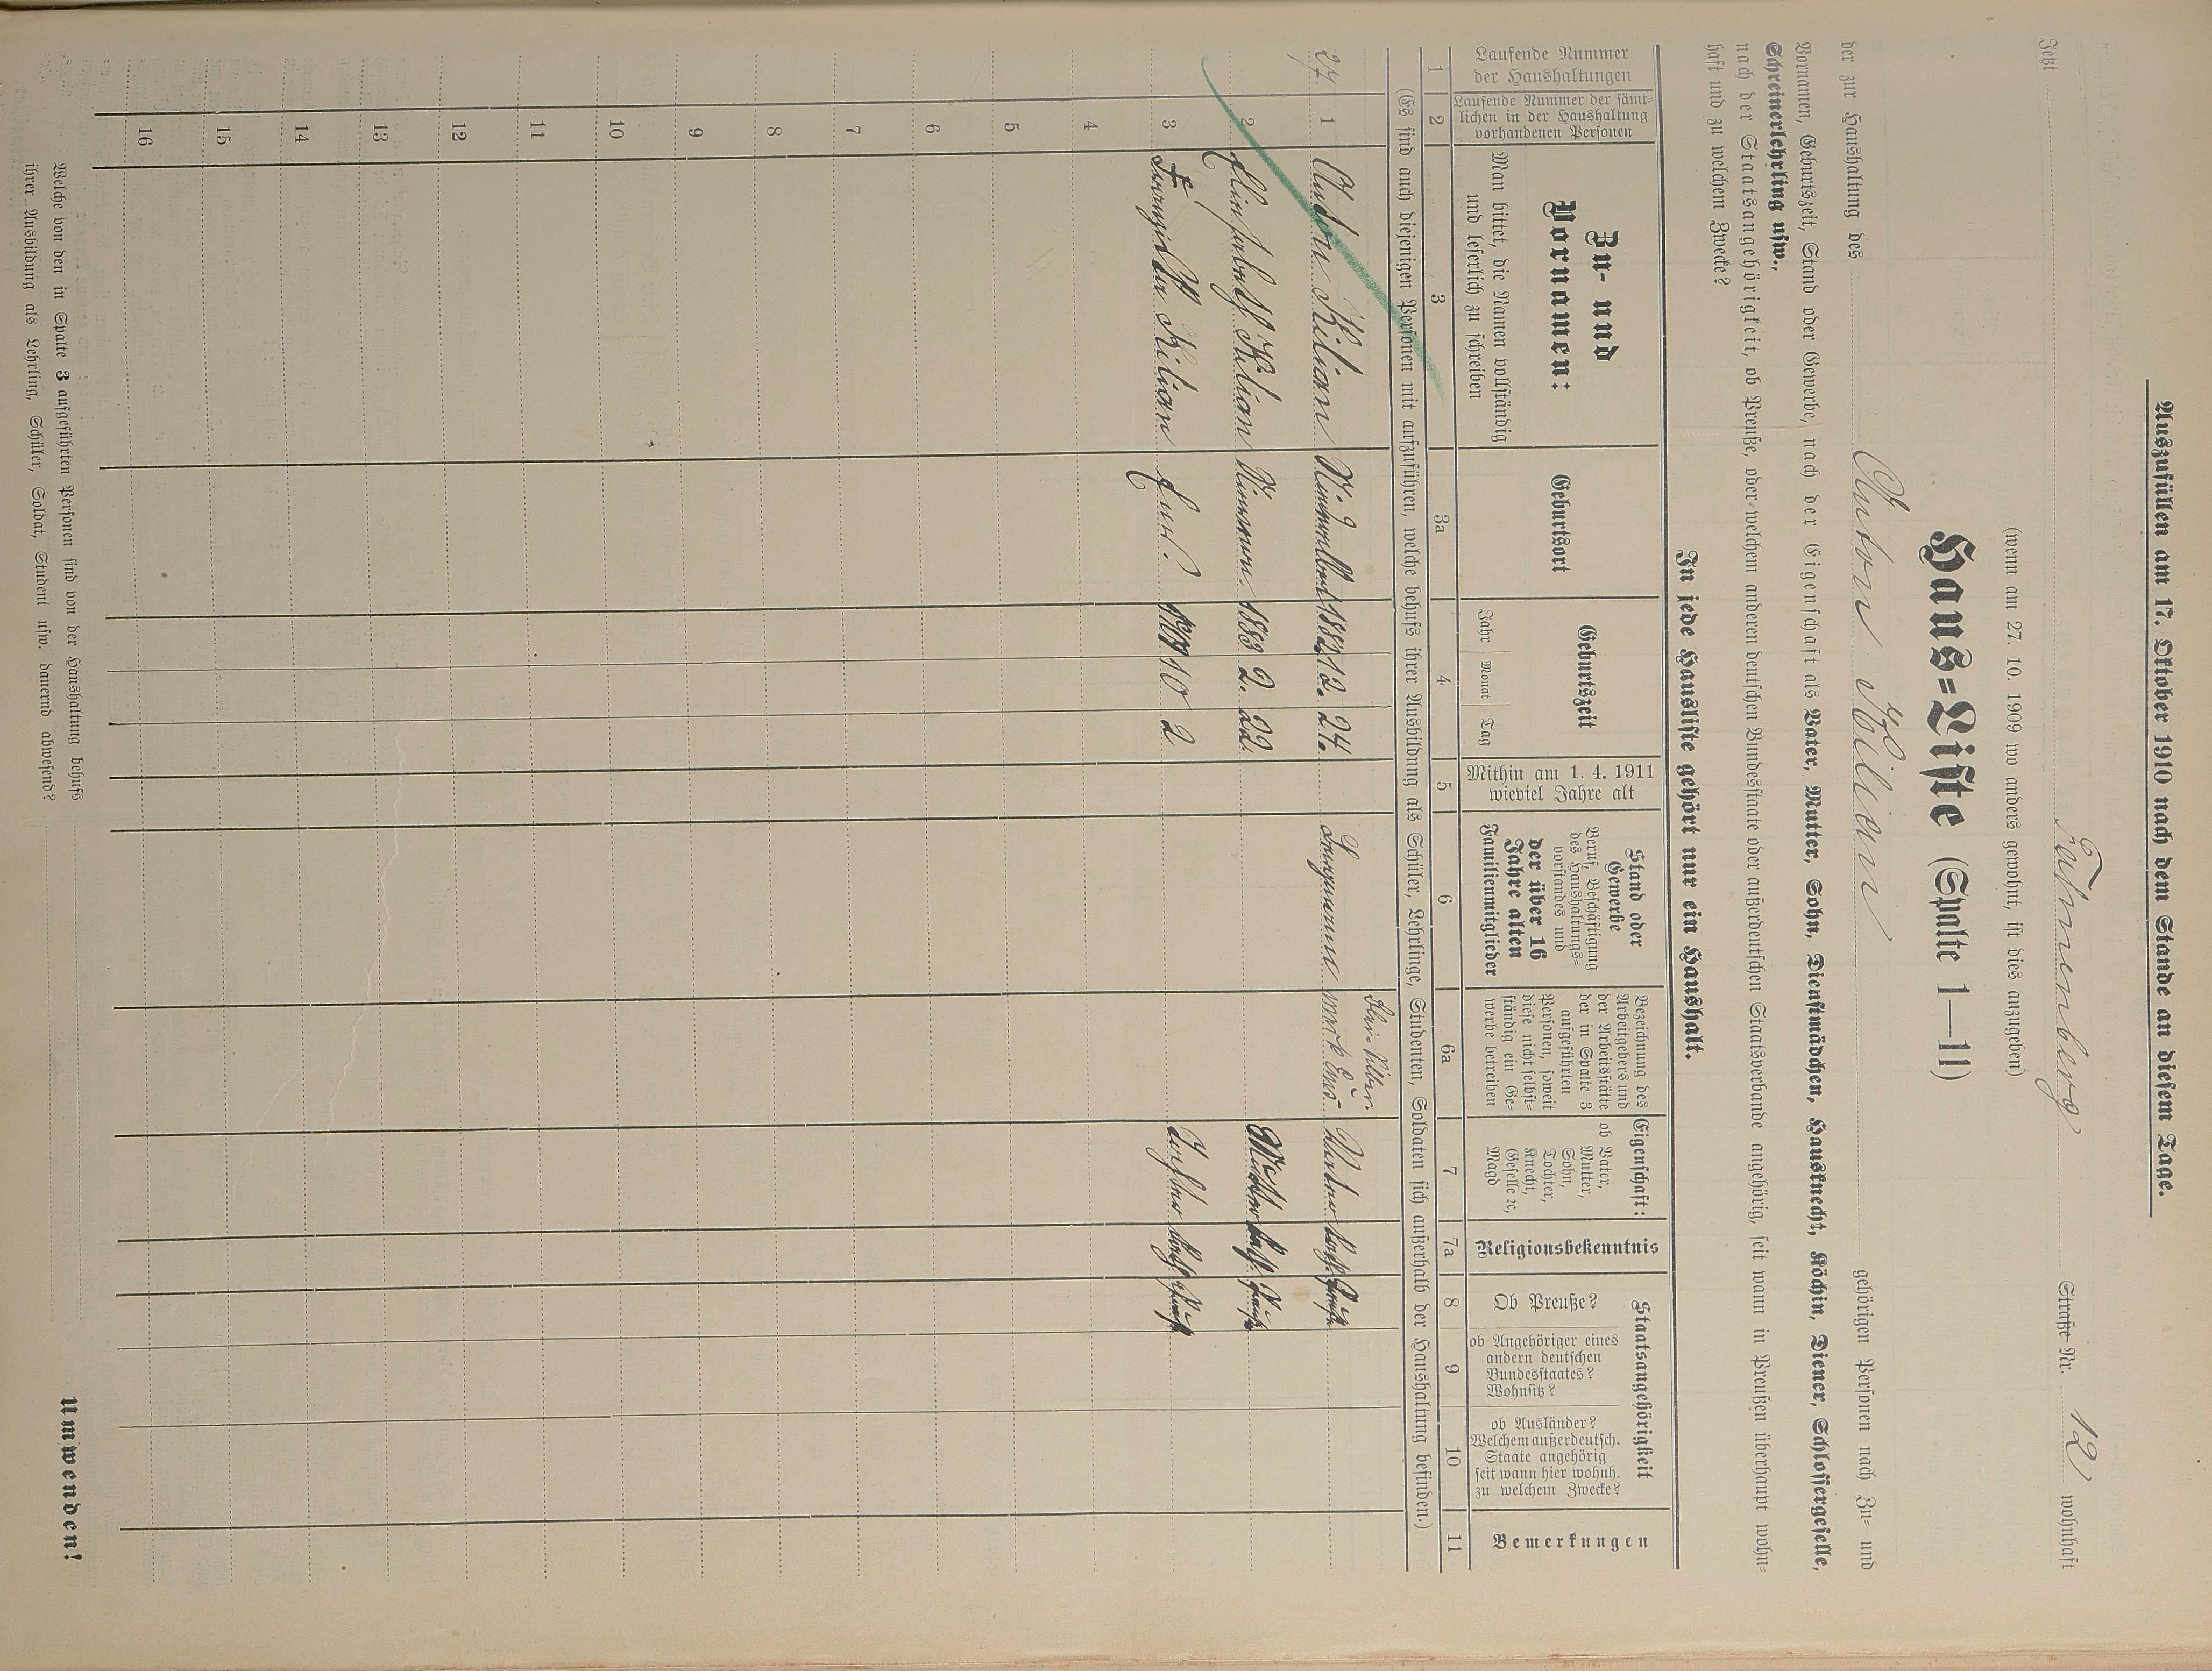 Auszufüllen am 17. Oktober 1910 nach dem Stande an diesem Tage.
Jetzt Fahnenberg Straße Nr. 12 wohnhaft
(wenn am 27. 10. 1909 wo anders gewohnt, ist dies anzugeben)
Haus=Liste (Spalte 1—11)
der zur Haushaltung des Anton Kilian gehörigen Personen nach Zu= und
Vornamen, Geburtszeit, Stand oder Gewerbe, nach der Eigenschaft als Vater, Mutter, Sohn, Dienstmädchen, Hausknecht, Köchin, Diener, Schlossergeselle,
Schreinerlehrling usw.,
nach der Staatsangehörigkeit, ob Preuße, oder welchem anderen deutschen Bundesstaate oder außerdeutschen Staatsverbande angehörig, seit wann in Preußen überhaupt wohn=
haft und zu welchem Zwecke?
In jede Hausliste gehört nur ein Haushalt.
Laufende Nummer
der Haushaltungen
Laufende Nummer der sämt=
lichen in der Haushaltung
vorhandenen Personen
Zu- und
Vornamen:
Man bittet, die Namen vollständig
und leserlich zu schreiben
Geburtsort
Geburtszeit
Jahr Monat Tag
Mithin am 1. 4. 1911
wieviel Jahre alt
Stand oder
Gewerbe
Beruf, Beschäftigung
des Haushaltungs=
vorstandes und
der über 16
Jahre alten
Familienmitglieder
Bezeichnung des
Arbeitgebers und
der Arbeitsstätte
der in Spalte 3
aufgeführten
Personen, soweit
diese nicht selbst=
ständig ein Ge=
werbe betreiben
Eigenschaft:
ob Vater,
Mutter,
Sohn,
Tochter,
Knecht,
Geselle 2c,
Magd
Religionsbekenntnis
Staatsangehörigkeit
Ob Preuße?
ob Angehöriger eines
andern deutschen
Bundesstaates?
Wohnsitz?
ob Ausländer?
Welchem außerdeutsch.
Staate angehörig
seit wann hier wohnh.
zu welchem Zwecke?
Bemerkungen
1 2 3 3a 4 5 6 6a 7 7a 8 9 10 11
(Es sind auch diejenigen Personen mit aufzuführen, welche behufs ihrer Ausbildung als Schüler, Lehrlinge, Studenten, Soldaten sich außerhalb der Haushaltung befinden.)
27. 1 Anton Kilian 1882 12. 24. Vater kath. Preuße
2 Elisabeth Kilian 1883 2. 22. Mutter kath. Preuße
3 Kilian Ems. 10 2 Tochter kath. Preuße
4
5
6
7
8
9
10
11
12
13
14
15
16
Welche von den in Spalte 3 aufgeführten Personen sind von der Haushaltung behufs
ihrer Ausbildung als Lehrling, Schüler, Soldat, Student usw. dauernd abwesend?
Umwenden!